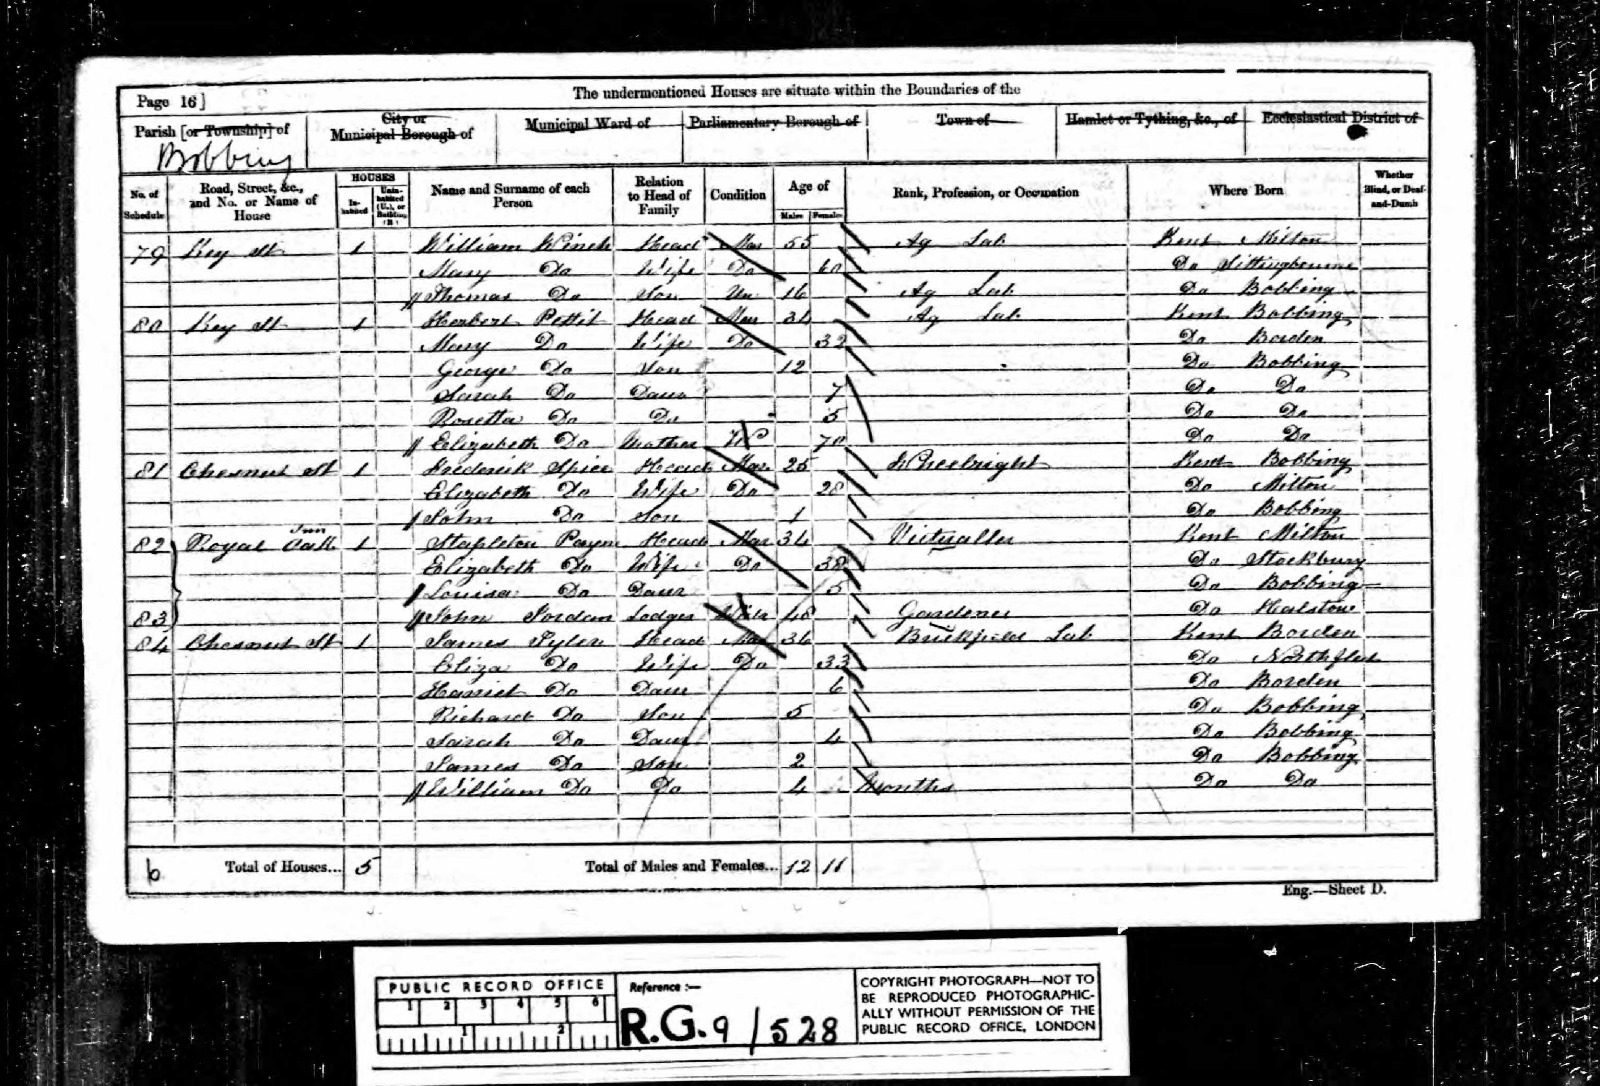 The undermentioned Houses are situate within the Boundaries of the
Page 16]
Parish [or Township] of City or Municipal Borough of Municipal Ward of Parliamentary Borough of Town of Hamlet or Tything, &c., of Ecclesiastical District of
Bobbing
No. of Schedule Road, Street, &c., and No. or Name of House HOUSES Inhabited Uninhabited (U.), or Building (B.) Name and Surname of each Person Relation to Head of Family Condition Age of Males Females Rank, Profession, or Occupation Where Born Whether Blind, or Deaf-and-Dumb
79 Key St 1 William Winch Head Mar 55 Ag Lab Kent Milton
Mary Do Wife Do 60 Do Sittingbourne
Thomas Do Son Un 16 Ag Lab Do Bobbing
80 Key St 1 Herbert Pettit Head Mar 34 Ag Lab Kent Bobbing
Mary Do Wife Do 32 Do Borden
George Do Son 12 Do Bobbing
Sarah Do Daur 7 Do Do
Rosetta Do Do 5 Do Do
Elizabeth Do Mother W 70 Do Do
81 Chesnut St 1 Frederick Spice Head Mar 25 Wheelright Kent Bobbing
Elizabeth Do Wife Do 28 Do Milton
John Do Son 1 Do Bobbing
82 Royal Oak Inn 1 Stapleton Payn Head Mar 34 Victualler Kent Milton
Elizabeth Do Wife Do 38 Do Stockbury
Louisa Do Daur 5 Do Bobbing
83 John Jordan Lodger 48 Gardener Do Halstow
84 Chesnut St 1 James Tyler Head Mar 36 Brickfield Lab Kent Borden
Eliza Do Wife Do 33 Do Northfleet
Harriet Do Daur 6 Do Borden
Richard Do Son 5 Do Bobbing
Sarah Do Daur 4 Do Bobbing
James Do Son 2 Do Bobbing
William Do Do 4 Months Do Do
6 Total of Houses... 5 Total of Males and Females... 12 11
Eng.—Sheet D.
PUBLIC RECORD OFFICE
1 2 3 4 5 6
1 2
Reference :—
R.G. 9/528
COPYRIGHT PHOTOGRAPH—NOT TO
BE REPRODUCED PHOTOGRAPHIC-
ALLY WITHOUT PERMISSION OF THE
PUBLIC RECORD OFFICE, LONDON